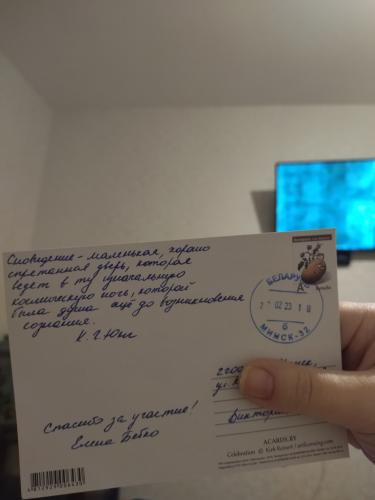 Сновидение - маленькая, хорошо
спрятанная дверь, которая
ведет в ту изначальную
космическую ночь, которой
была душа ещё до возникновения
сознания.
К. Г. Юнг
Спасибо за участие!
Елена Бебко
БЕЛАРУСЬ
02 23 18
б
МИНСК-32
A
220
ул. К
Виктори
ACARDS.BY
Celebration © Kirk Reinert / artlicensing.com